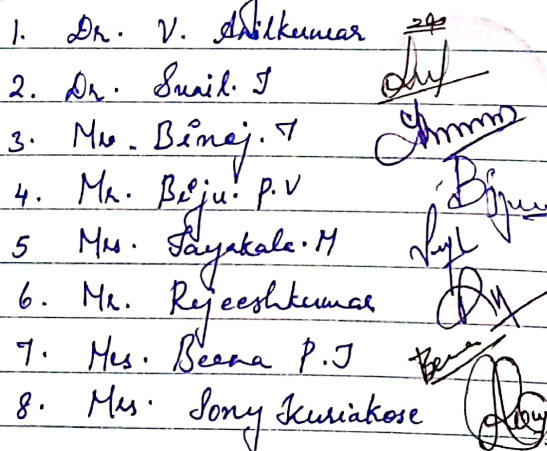 1. Dr. V. Anilkumar
2. Dr. Sunil. J
3. Mr. Binoj. T
4. Mr. Biju. P.V Biju
5 Mrs. Jayakala. M
6. Mr. Rejeeshkumar
7. Mrs. Beena P.J Beena
8. Mrs. Sony Kuriakose